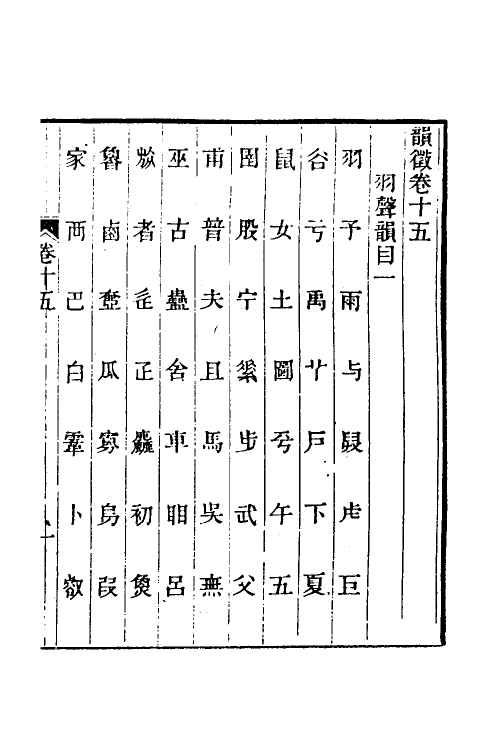 韻徵卷十五
羽聲韻目一
羽予雨与叚虍巨
谷亏禹丱戶下夏
鼠女土圖兮午五
圉股宁素步武父
甫普夫且馬吳無
巫古蠱舍車䀠呂
敖者疋正麤初煑
魯鹵壺瓜寡烏叚
家兩巴白䨣卜㕡
卷十五
一